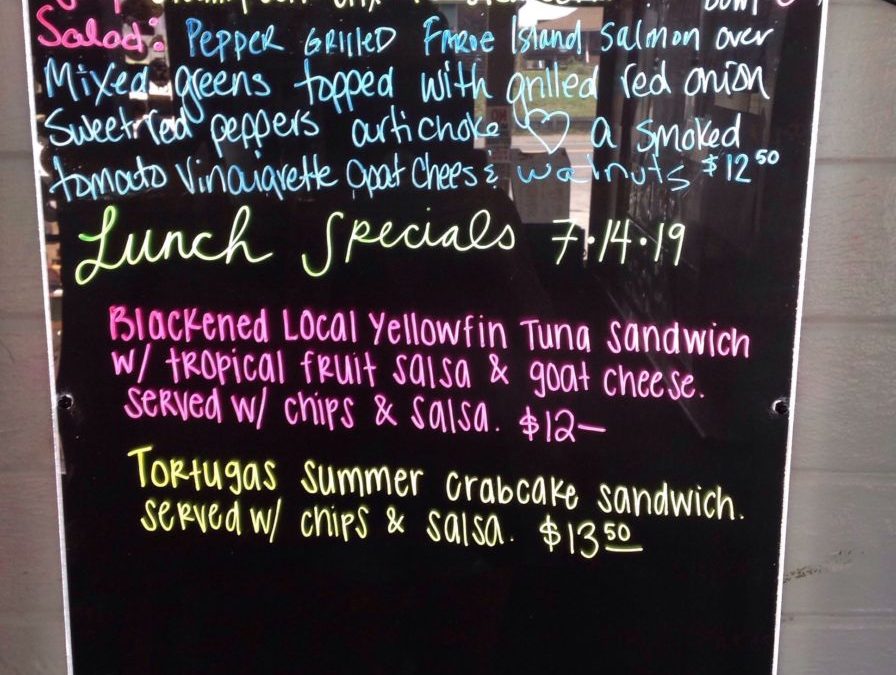 Bowl
Salad: Pepper Grilled Faroe Island Salmon over
Mixed greens topped with grilled red onion
Sweet red peppers artichoke ♡ a smoked
tomato Vinaigrette Goat Chees & walnuts $12 50
Lunch Specials 7.14.19
Blackened Local Yellowfin Tuna Sandwich
w/ tropical fruit salsa & goat cheese.
served w/ chips & salsa. $12—
Tortugas summer crabcake sandwich.
served w/ chips & salsa. $13 50